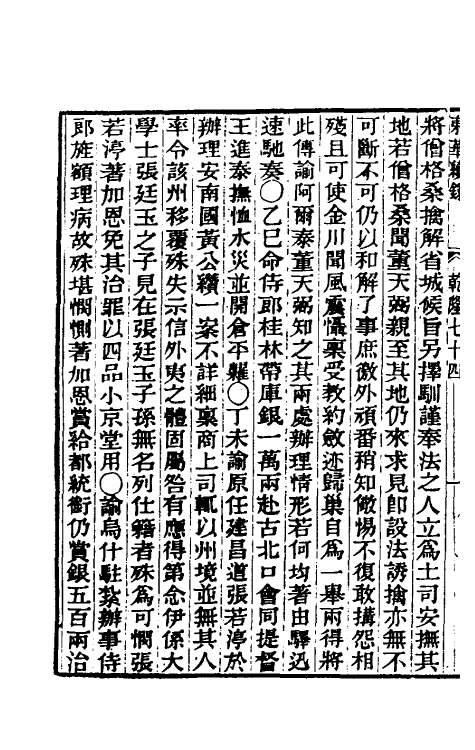 東華續錄 乾隆七十四
將僧格桑擒解省城候旨另擇馴謹奉法之人立爲土司安撫其
地若僧格桑聞董天弼親至其地仍來求見卽設法誘擒亦無不
可斷不可仍以和解了事庶徼外頑番稍知儆惕不復敢搆怨相
殘且可使金川聞風震懾稟受教約斂迹歸巢自爲一舉兩得將
此傳諭阿爾泰董天弼知之其兩處辦理情形若何均著由驛迅
速馳奏○乙巳命侍郎桂林帶庫銀一萬兩赴古北口會同提督
王進泰撫恤水災並開倉平糶○丁未諭原任建昌道張若渟於
辦理安南國黃公纘一案不詳細稟商上司輒以州境並無其人
率令該州移覆殊失示信外夷之體固屬咎有應得第念伊係大
學士張廷玉之子見在張廷玉子孫無名列仕籍者殊爲可憫張
若渟著加恩免其治罪以四品小京堂用○諭烏什駐紮辦事侍
郎旌額理病故殊堪憫惻著加恩賞給都統銜仍賞銀五百兩治